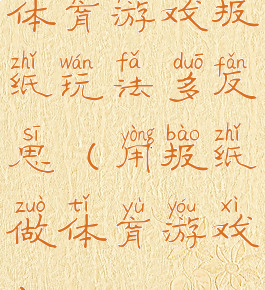 体育游戏报
zhǐ wán fǎ duō fǎn
纸玩法多反
sī yòng bào zhǐ
思（用报纸
zuò tǐ yù yóu xì
做体育游戏